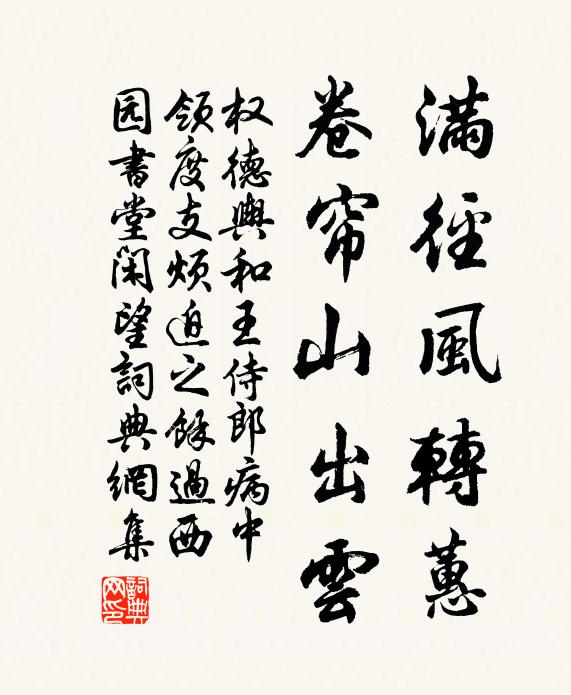 满径風轉蕙
卷帘山出雲
权德輿和王侍郎病中
領度支煩迫之餘過西
园書堂閑望詞典網集
詞典
网印